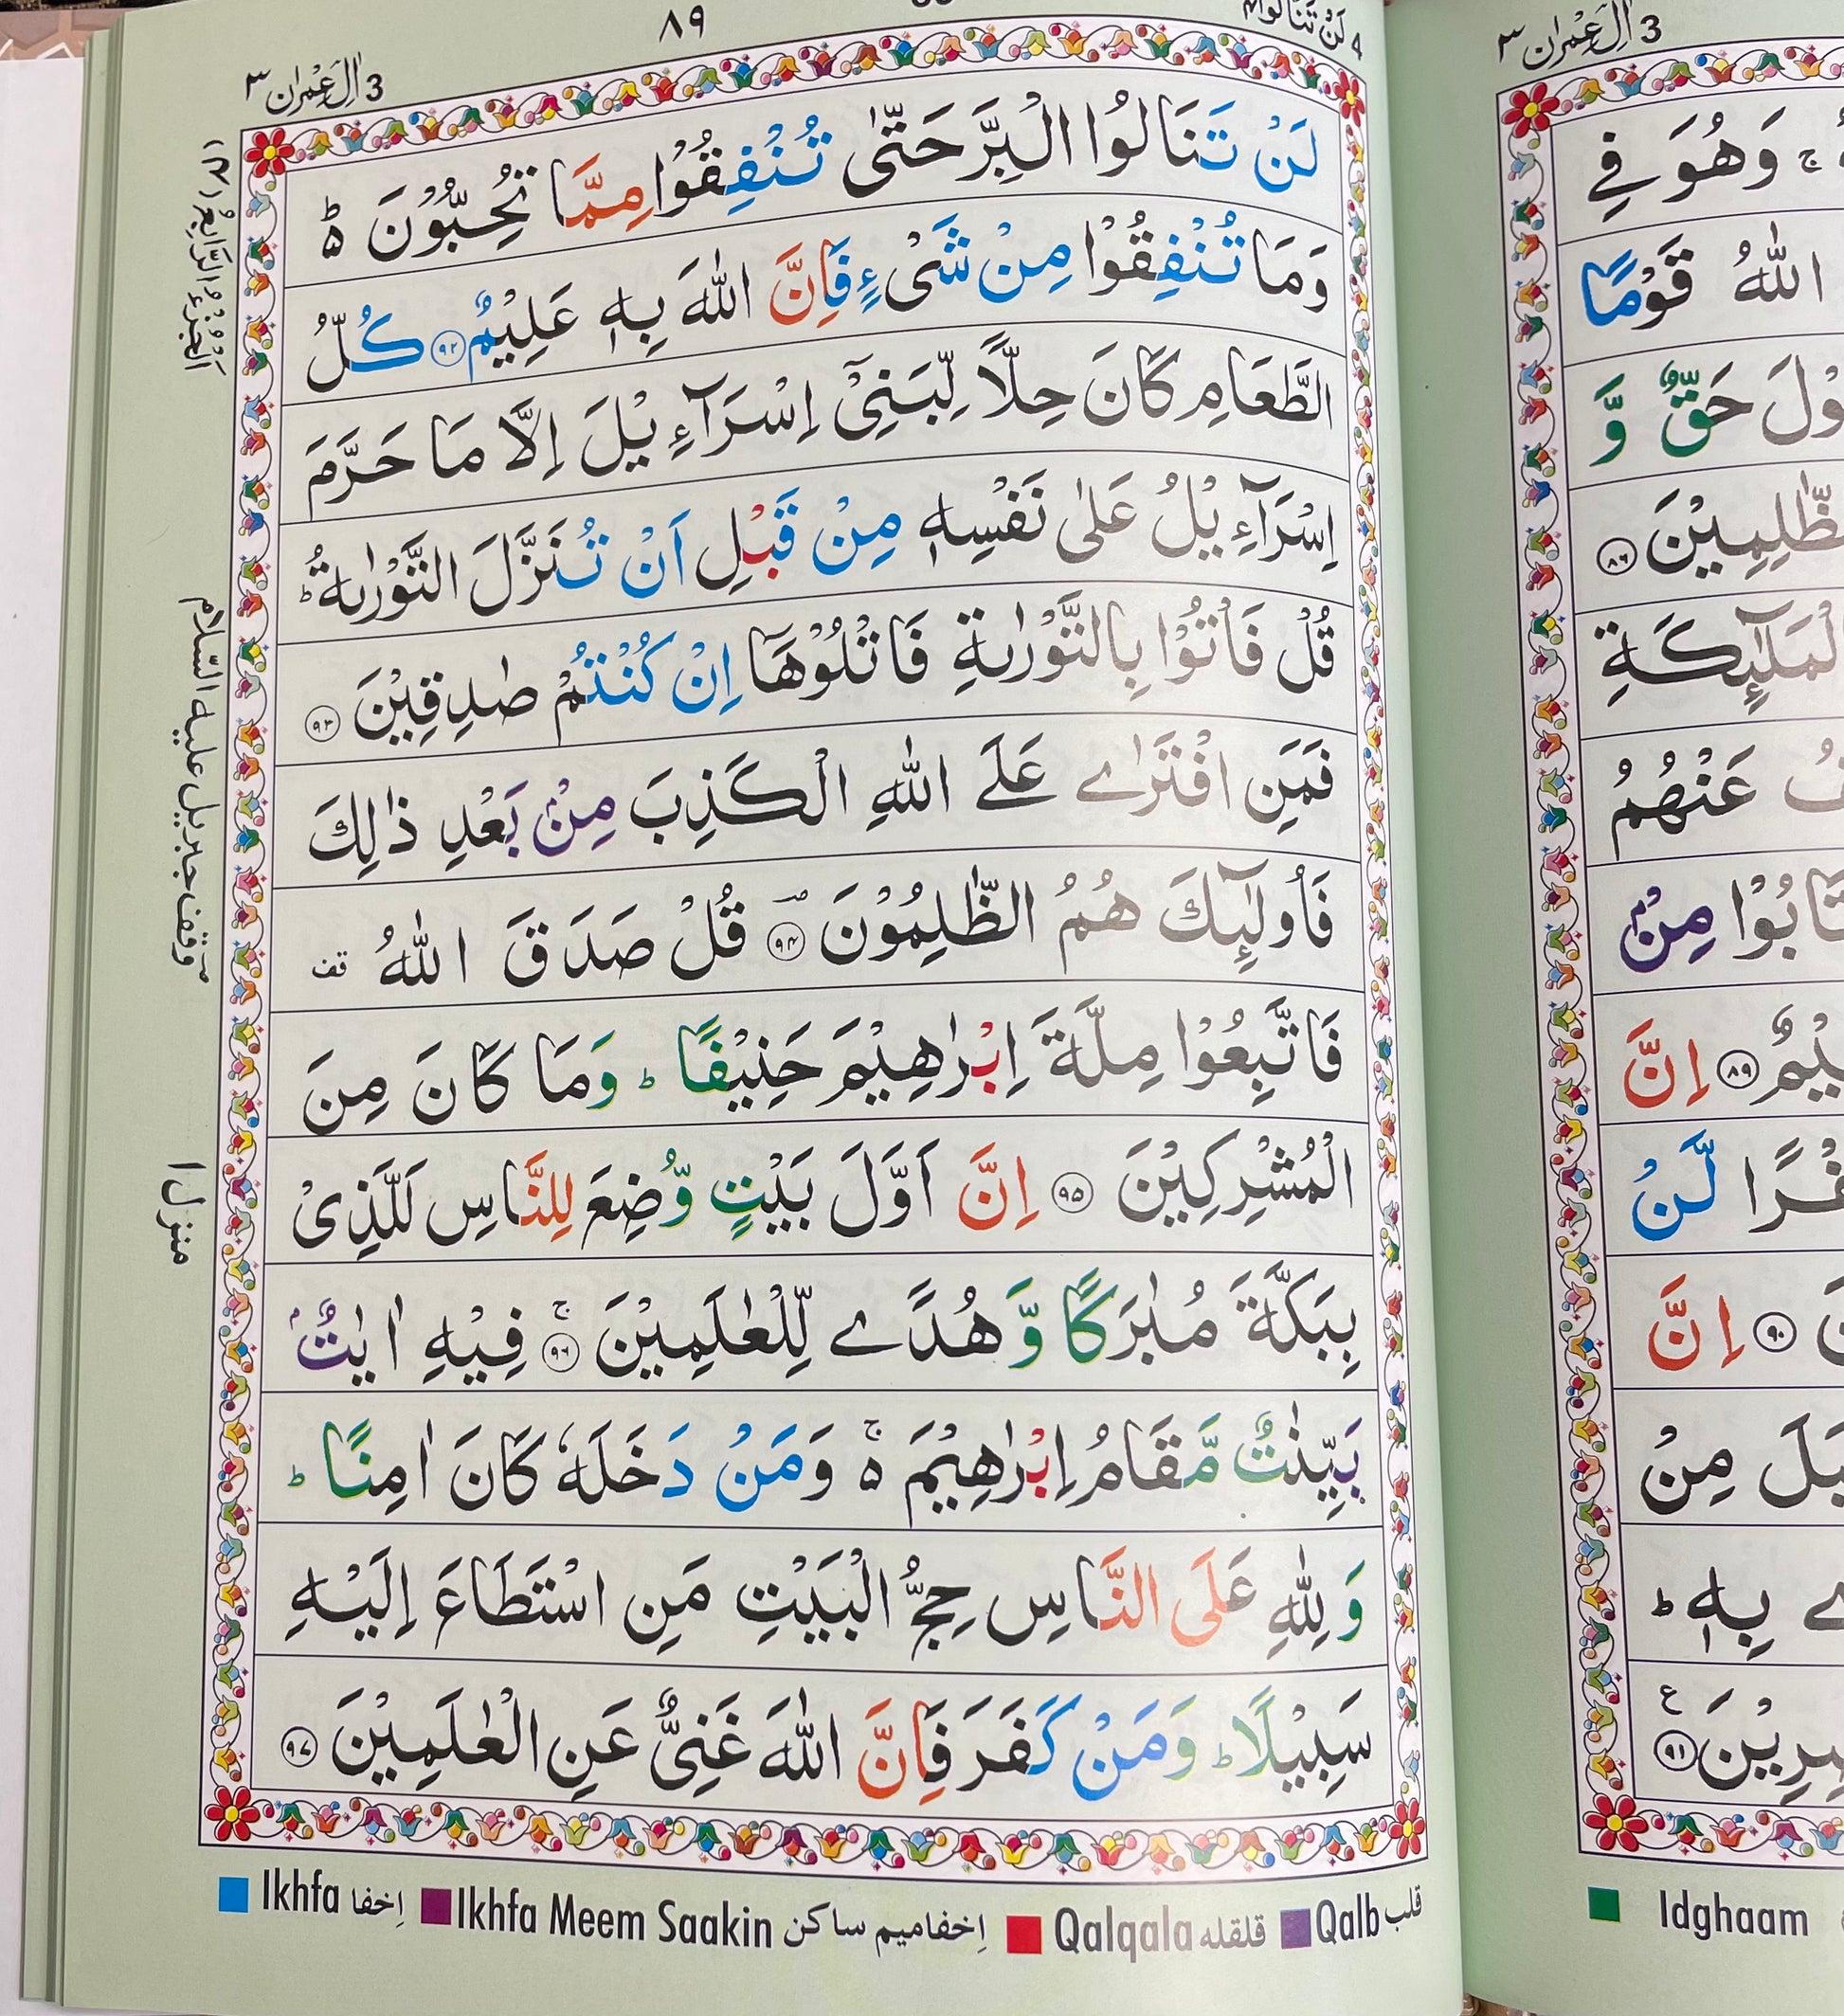 ٨٩
لَنْ تَنَالُوا
٤
3 اٰلِ عِمْرٰن ٣
لَنْ تَنَالُوا الْبِرَّ حَتّٰى تُنْفِقُوْا مِمَّا تُحِبُّوْنَ ؕ۬
وَمَا تُنْفِقُوْا مِنْ شَىْءٍ فَاِنَّ اللّٰهَ بِهٖ عَلِيْمٌ ﴿٩٢﴾ كُلُّ
الطَّعَامِ كَانَ حِلًّا لِّبَنِىْۤ اِسْرَآءِيْلَ اِلَّا مَا حَرَّمَ
اِسْرَآءِيْلُ عَلٰى نَفْسِهٖ مِنْ قَبْلِ اَنْ تُنَزَّلَ التَّوْرٰىةُ ؕ
قُلْ فَاْتُوْا بِالتَّوْرٰىةِ فَاتْلُوْهَاۤ اِنْ كُنْتُمْ صٰدِقِيْنَ ﴿٩٣﴾
فَمَنِ افْتَرٰے عَلَے اللّٰهِ الْكَذِبَ مِنْۢ بَعْدِ ذٰلِكَ
فَاُولٰٓئِكَ هُمُ الظّٰلِمُوْنَ ﴿٩٤﴾ؔ قُلْ صَدَقَ اللّٰهُ قف
فَاتَّبِعُوْا مِلَّةَ اِبْرٰهِيْمَ حَنِيْفًا ؕ وَمَا كَانَ مِنَ
الْمُشْرِكِيْنَ ﴿٩٥﴾ اِنَّ اَوَّلَ بَيْتٍ وُّضِعَ لِلنَّاسِ لَلَّذِىْ
بِبَكَّةَ مُبٰرَكًا وَّهُدًے لِّلْعٰلَمِيْنَ ﴿٩٦﴾ۚ فِيْهِ اٰيٰتٌۢ
بَيِّنٰتٌ مَّقَامُ اِبْرٰهِيْمَ ۬ۚ وَمَنْ دَخَلَهٗ كَانَ اٰمِنًا ؕ
وَلِلّٰهِ عَلَى النَّاسِ حِجُّ الْبَيْتِ مَنِ اسْتَطَاعَ اِلَيْهِ
سَبِيْلًا ؕ وَمَنْ كَفَرَ فَاِنَّ اللّٰهَ غَنِىٌّ عَنِ الْعٰلَمِيْنَ ﴿٩٧﴾
اَلْجُزْءُ الرَّابِعُ (٤)
وقف جبريل عليه السّلام
منزل ١
Ikhfa اِخفا Ikhfa Meem Saakin اِخفاميم ساكن Qalqala قلقله Qalb قلب
3 اٰلِ عِمْرٰن ٣
ۚ وَهُوَ فِي
اللّٰهُ قَوْمًا
حَقٌّ وَّ
﴿٨٦﴾
عَنْهُمُ
تَابُوْا مِنْۢ
﴿٨٩﴾ اِنَّ
لَّنْ
﴿٩٠﴾ اِنَّ
مِنْ
بِهٖ ؕ
﴿٩١﴾ ع
Idghaam